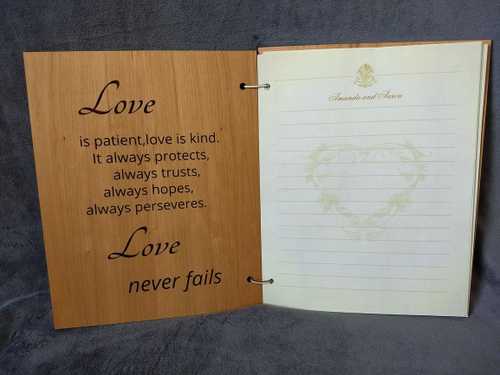 Love
is patient,love is kind.
It always protects,
always trusts,
always hopes,
always perseveres.
Love
never fails
Amanda and Aaron